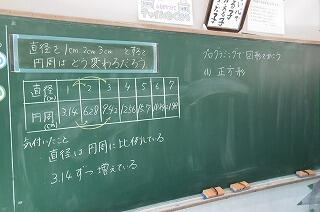 直径を1cm、2cm、3cm とすると
円周はどう変わるだろう
直径(cm) 1 2 3 4 5 6 7
円周(cm) 3.14 6.28 9.42 12.56 15.7
気付いたこと
・直径は円周に比例している
3.14ずつ増えている
プログラミングで図形をかこう
(1) 正方形